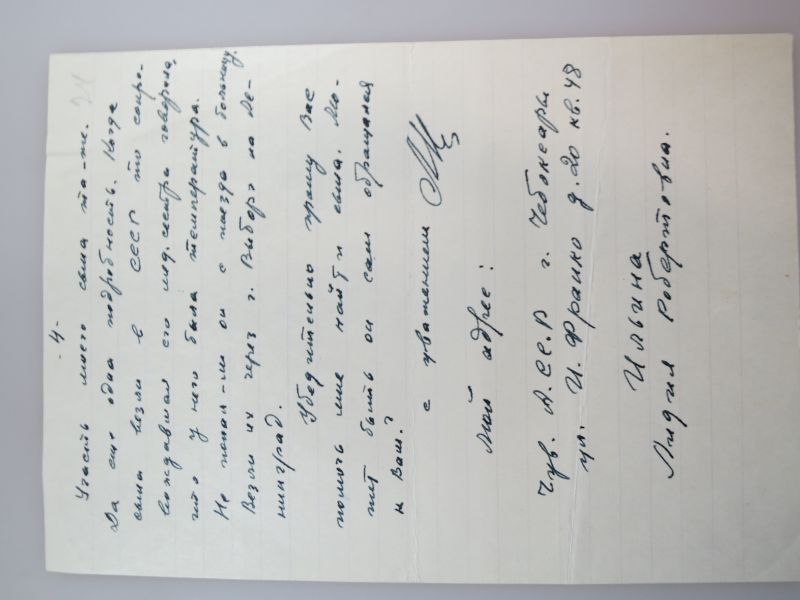 -4-
Участь моего сына та-же.
Да еще одна подробность. Когда
сына везли в СССР то сопро-
вождавшая его мед.сестра говорила,
что у него была температура.
Не попал-ли он с поезда в больницу.
Везли их через г. Выборг на Ле-
нинград.
Убедительно прошу Вас
помочь мне найти сына. Мо-
жет быть он сам обращался
к Вам?
с уважением
Мой адрес:
Чув. А.СС.Р г. Чебоксары
ул. И. Франко д. 20 кв. 48
Ильина
Лидия Робертовна.